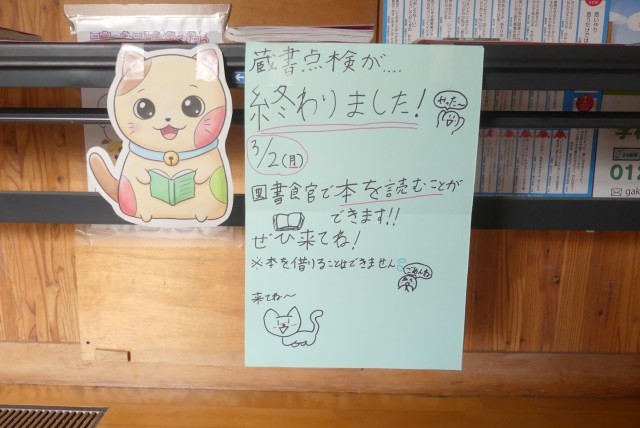 蔵書点検が....
終わりました!
やったー
3/2(月)
図書館で本を読むことが
できます!!
ぜひ来てね!
※本を借りることはできません
ごめんね
来てね〜
012